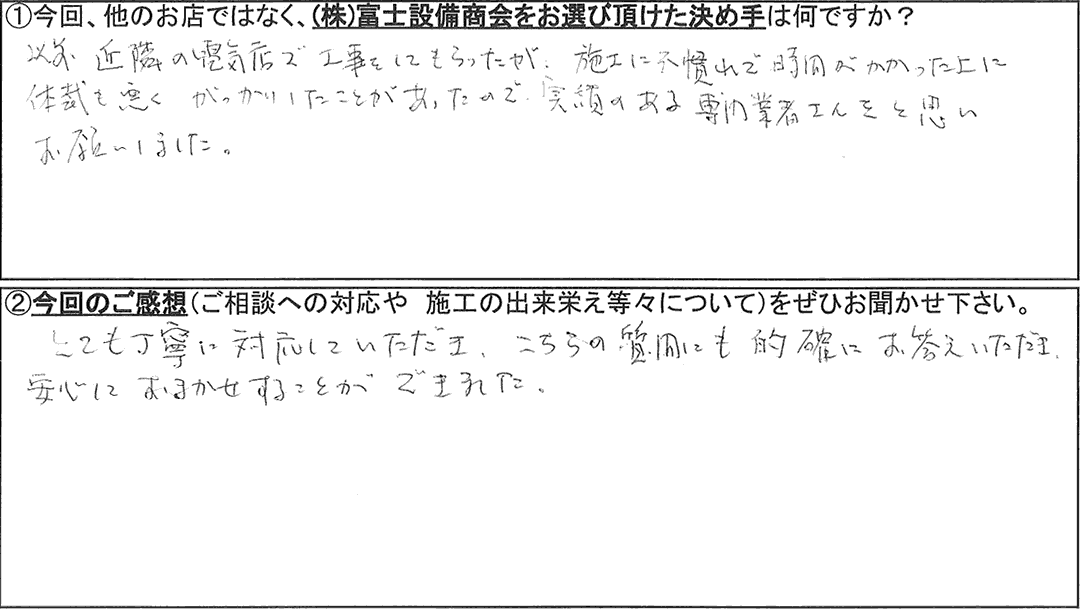 ①今回、他のお店ではなく、(株)富士設備商会をお選び頂けた決め手は何ですか？
以前 近隣の電気店で工事をしてもらったが、施工に不慣れで時間がかかった上に
体裁も悪く がっかりしたことがあったので、実績のある専門業者さんをと思い
お願いしました。
②今回のご感想(ご相談への対応や 施工の出来栄え等々について)をぜひお聞かせ下さい。
とても丁寧に対応していただき、こちらの質問にも的確にお答えいただき、
安心しておまかせすることができました。